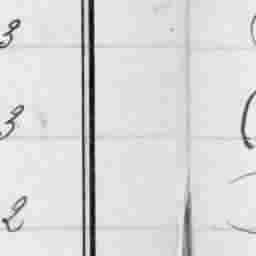 3
3
2